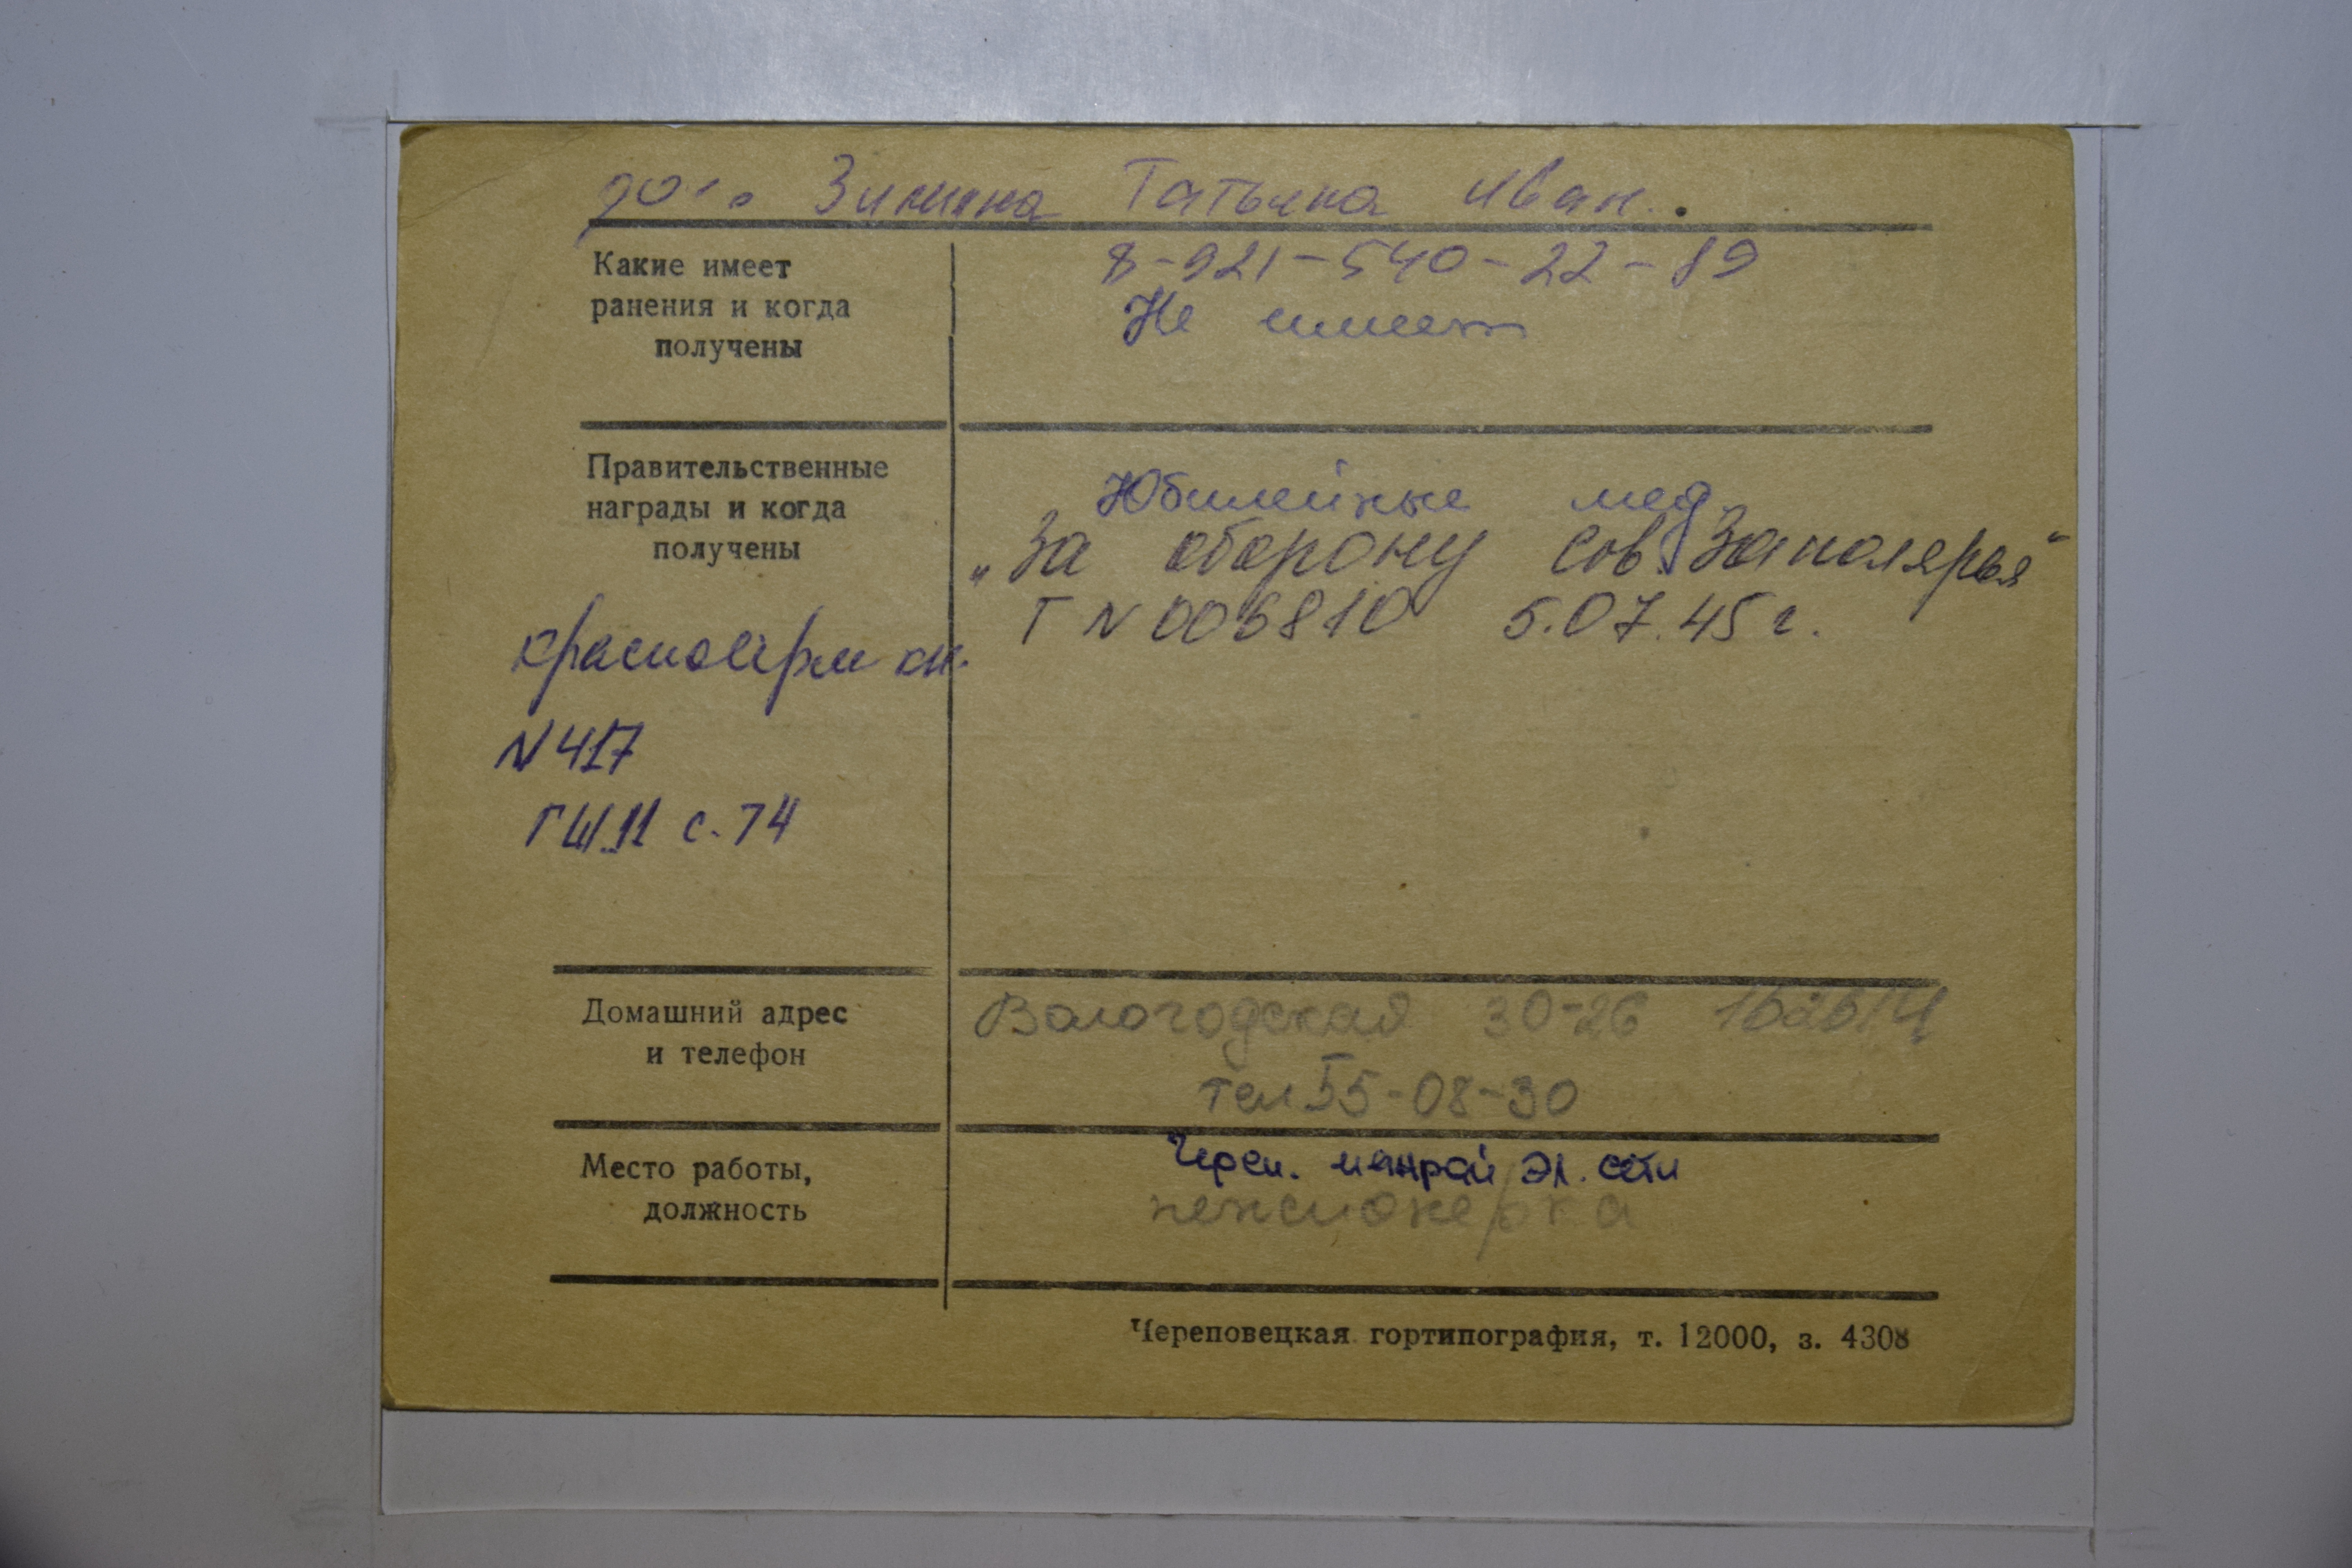 Зимина Татьяна Иван.
Какие имеет
ранения и когда
получены
8-921-540-22-89
Не имеет
Правительственные
награды и когда
получены
Юбилейные мед.
„За оборону Сов. Заполярья“
Г N 006810 5.07.45 г.
красноарм кн.
N 417
ГШ 11 с. 74
Домашний адрес
и телефон
Вологодская 30-26 162614
тел 55-08-30
Место работы,
должность
Череп. межрай эл. сети
пенсионерка
Череповецкая гортипография, т. 12000, з. 4308